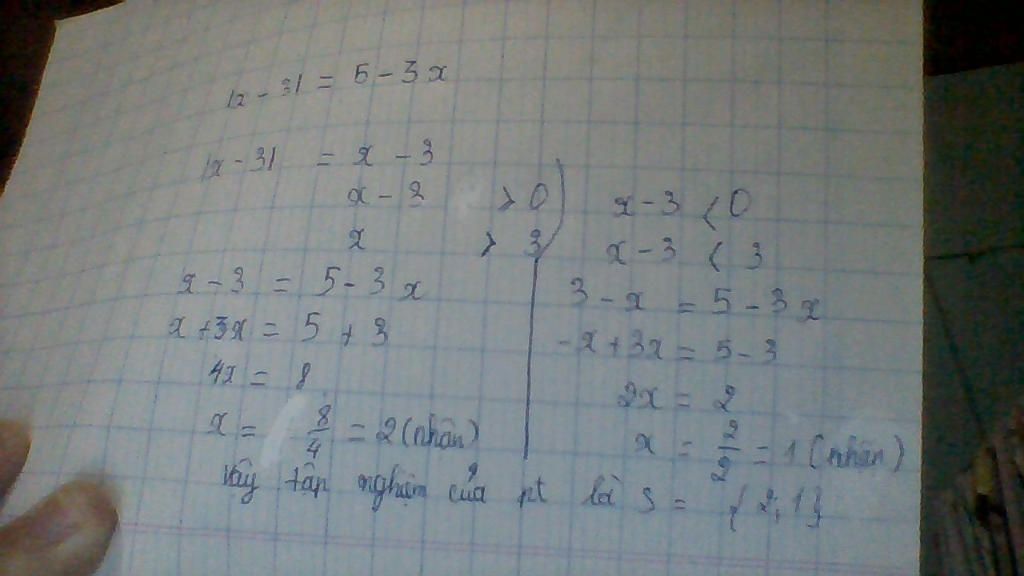 |x - 3| = 5 - 3x
|x - 3| = x - 3
x - 3 > 0
x > 3
x - 3 = 5 - 3x
x + 3x = 5 + 3
4x = 8
x = 8/4 = 2 (nhận)
x - 3 < 0
x - 3 < 3
3 - x = 5 - 3x
-x + 3x = 5 - 3
2x = 2
x = 2/2 = 1 (nhận)
Vậy tập nghiệm của pt là S = {2; 1}